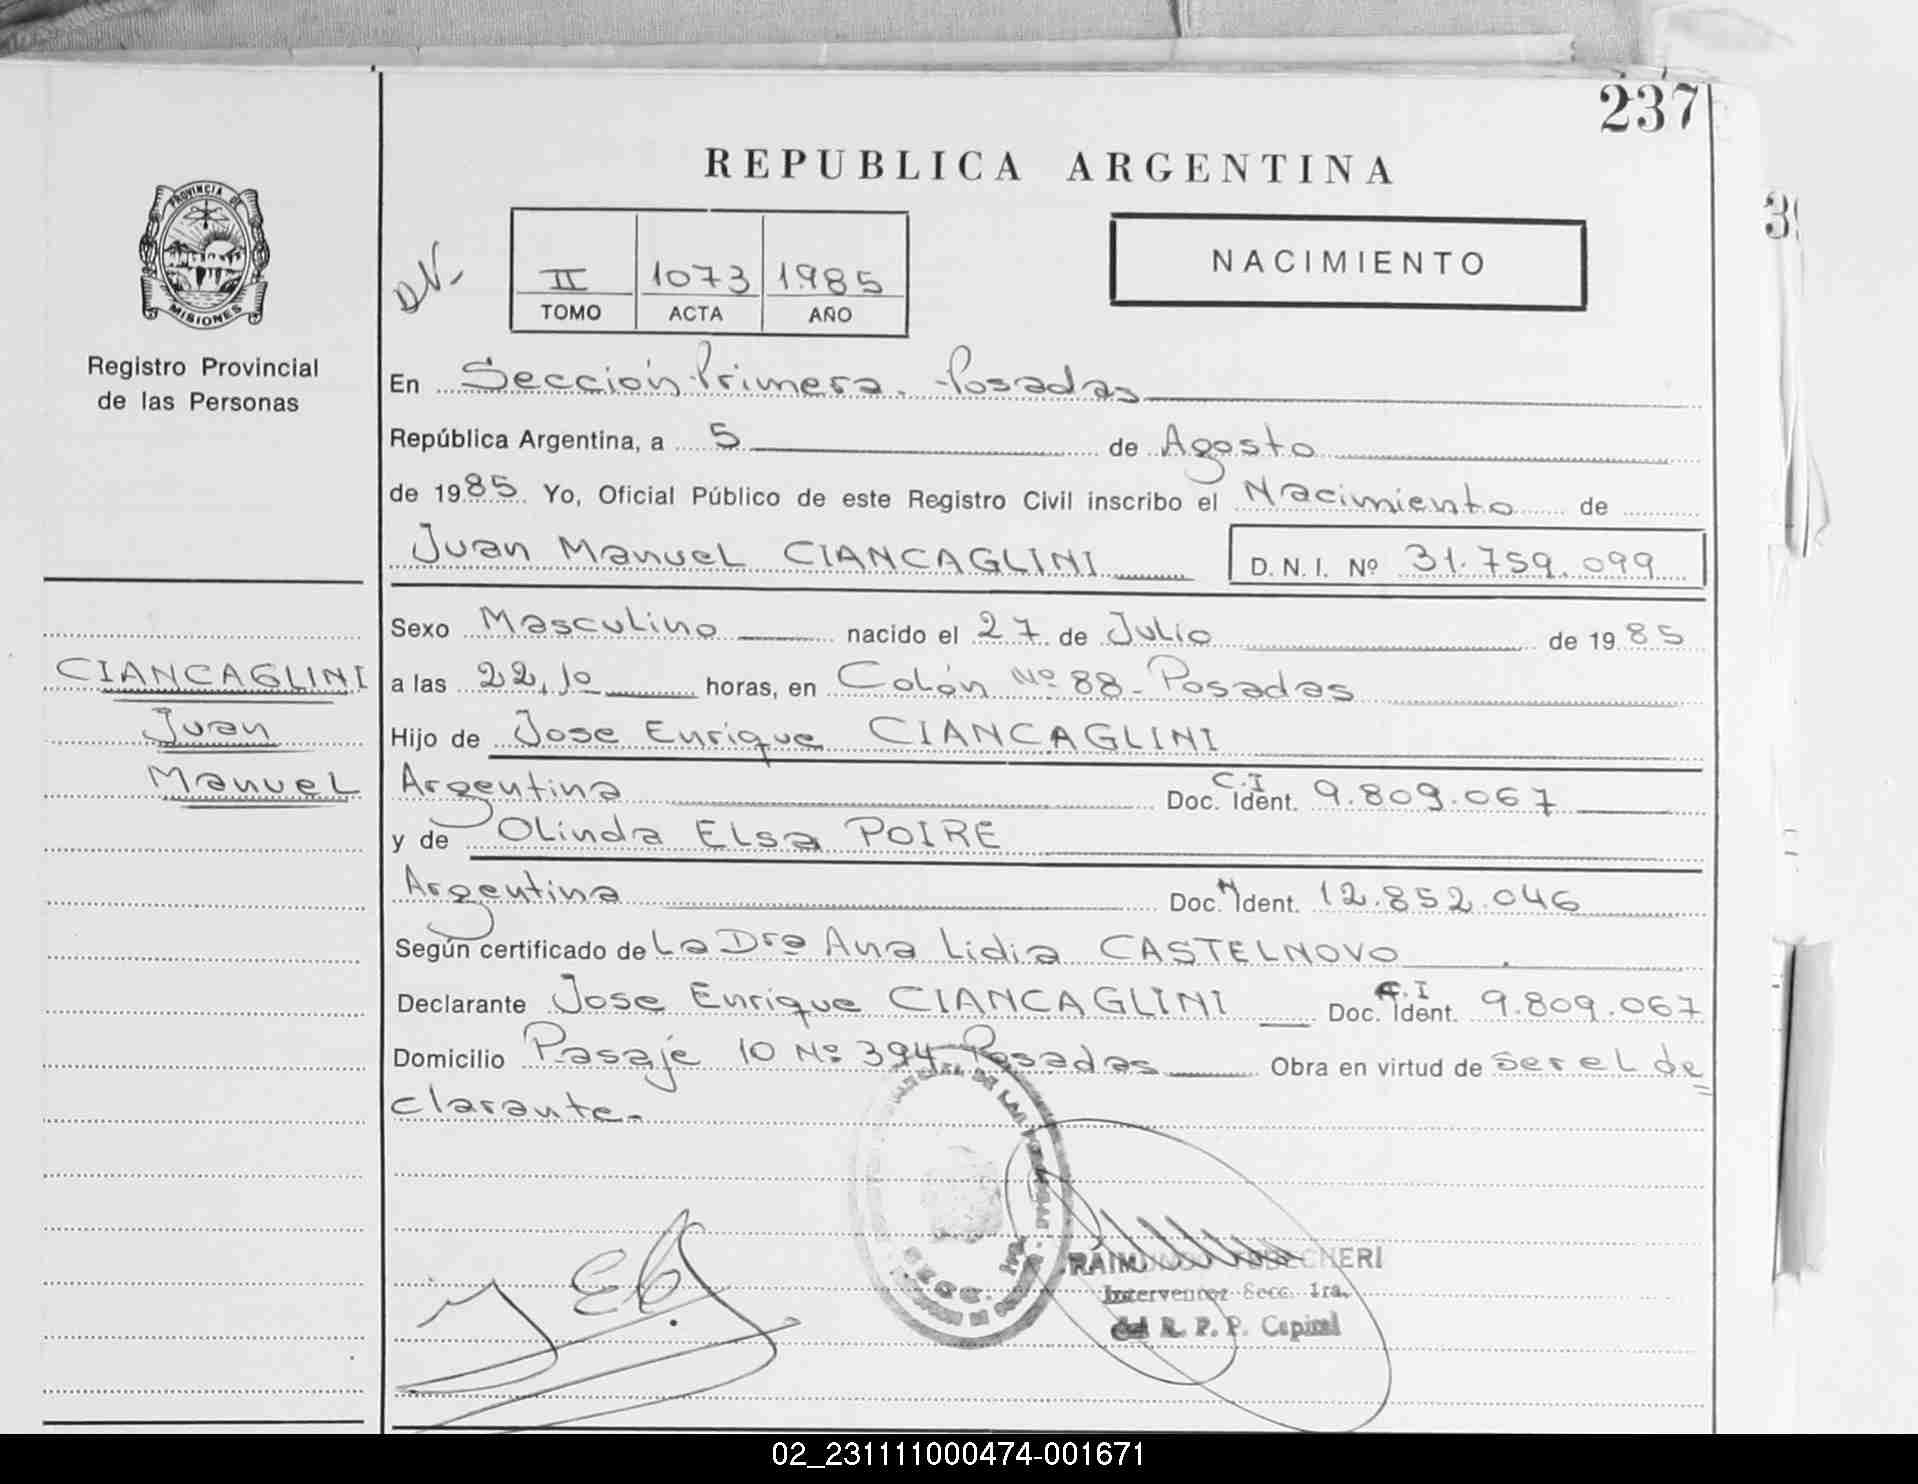 237
REPUBLICA ARGENTINA
PROVINCIA DE
MISIONES
Registro Provincial
de las Personas
DN-
II 1073 1985
TOMO ACTA AÑO
NACIMIENTO
En Sección Primera. Posadas
República Argentina, a 5 de Agosto
de 1985 Yo, Oficial Público de este Registro Civil inscribo el Nacimiento de
Juan Manuel CIANCAGLINI D.N.I. Nº 31.759.099
Sexo Masculino nacido el 27 de Julio de 1985
CIANCAGLINI
Juan
Manuel
a las 22,10 horas, en Colón Nº 88 - Posadas
Hijo de Jose Enrique CIANCAGLINI
Argentina Doc. C.I Ident. 9.809.067
y de Olinda Elsa POIRE
Argentina Doc. N Ident. 12.852.046
Según certificado de La Dra Ana Lidia CASTELNOVO
Declarante Jose Enrique CIANCAGLINI Doc. C.I Ident. 9.809.067
Domicilio Pasaje 10 Nº 394 Posadas Obra en virtud de ser el de=
clarante.-
Interventor Secc. 1ra.
del R. P. P. Capital
02_231111000474-001671